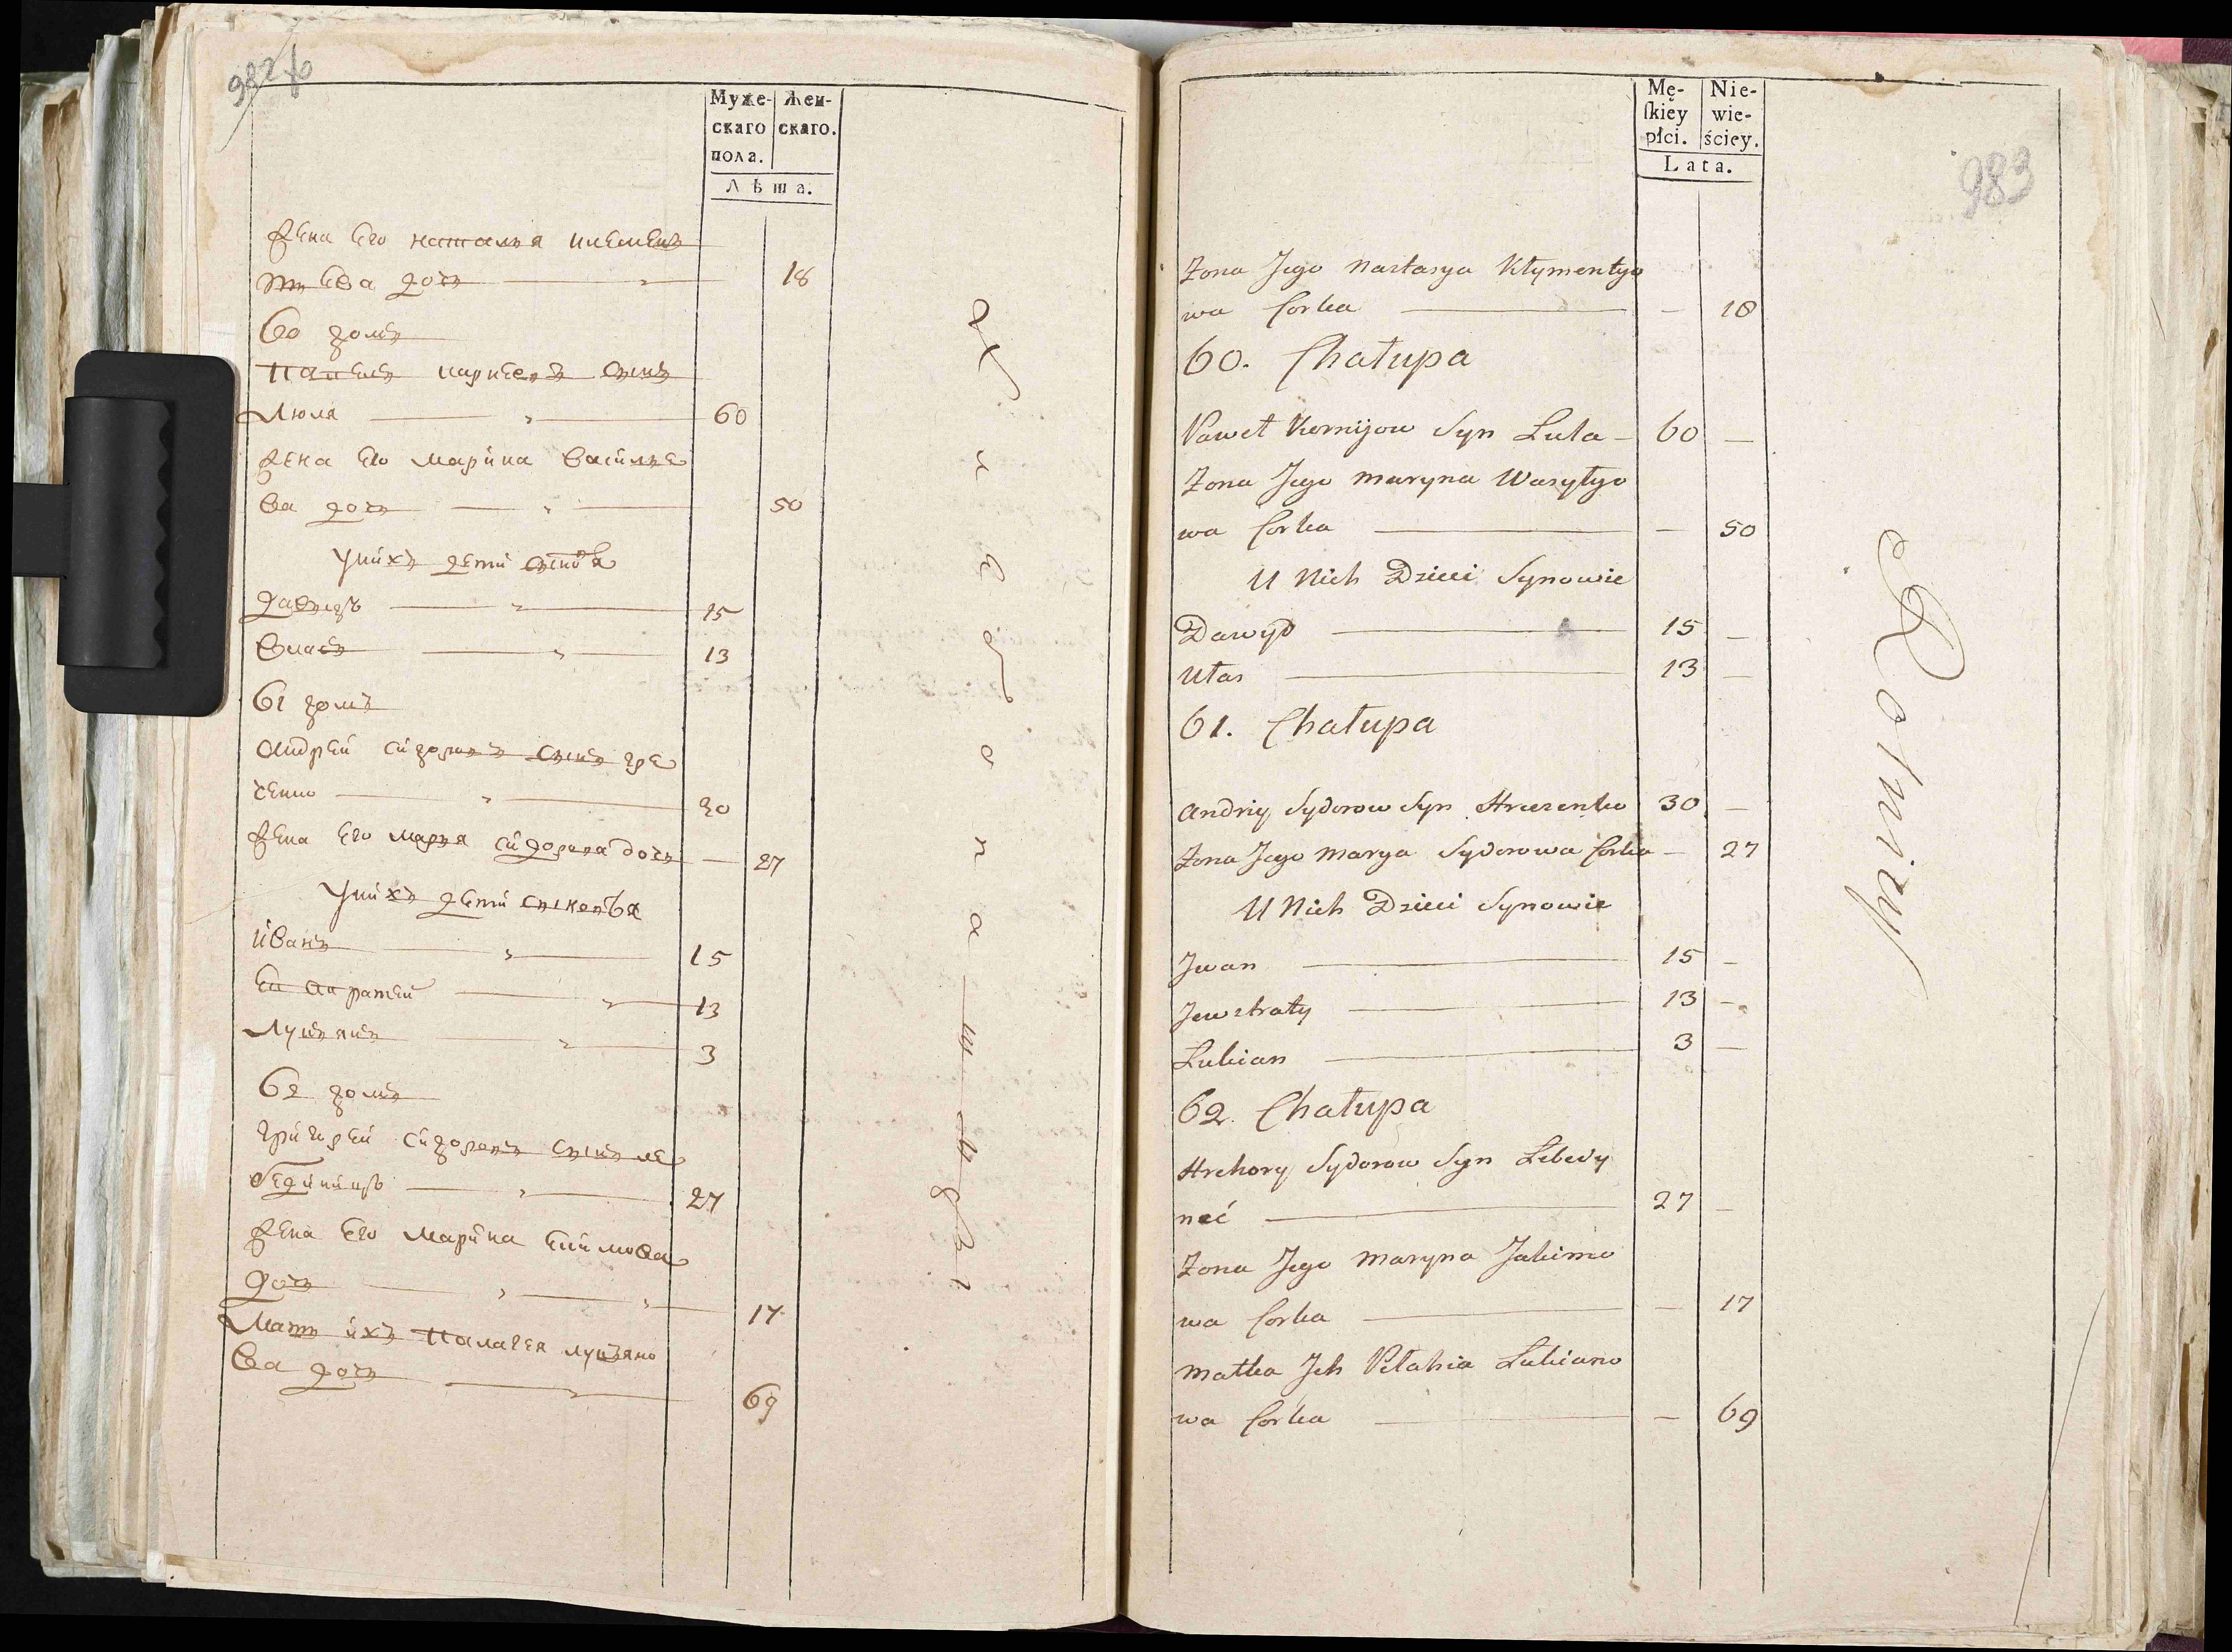 982 об
Муже- Жен-
скаго скаго.
пола.
Лѣта.
Жена Его наталя клемень
тиева дочь 18
60 домъ
Павелъ карнеевъ сынъ
Люля 60
Жена Его марина василье
ва дочь 50
Унихъ дети сыновя
давыдъ 15
власъ 13
61 домъ
Андрей сидоровъ сынъ гре
ченко 30
Жена Его марья сидорова дочь 27
Унихъ дети сыновья
иванъ 15
Евстратей 13
лукянъ 3
62 домъ
григорей сидоровъ сынъ ле
бединицъ 27
Жена Его марина Екимова
дочь 17
Мать ихъ палагея лукьяно
ва дочь 69
983
Mę- Nie-
skiey wie-
płci. ściey.
Lata.
Żona Jego Nastasya Kłymentyo
wa Corka — 18
60. Chałupa
Paweł Kornijow Syn Lula 60 —
Żona Jego Maryna Wasylyo
wa Corka — 50
U Nich Dzieci Synowie
Dawyd 15 —
Ułas 13 —
61. Chałupa
Andriy Sydorow Syn Hreczenko 30 —
Żona Jego Marya Sydorowa Corka — 27
U Nich Dzieci Synowie
Jwan 15 —
Jewstraty 13 —
Lukian 3 —
62. Chałupa
Hrehory Sydorow Syn Lebedy
neć 27 —
Żona Jego Maryna Jakimo
wa Corka — 17
Matka Jch Pełahia Lukiano
wa Corka — 69